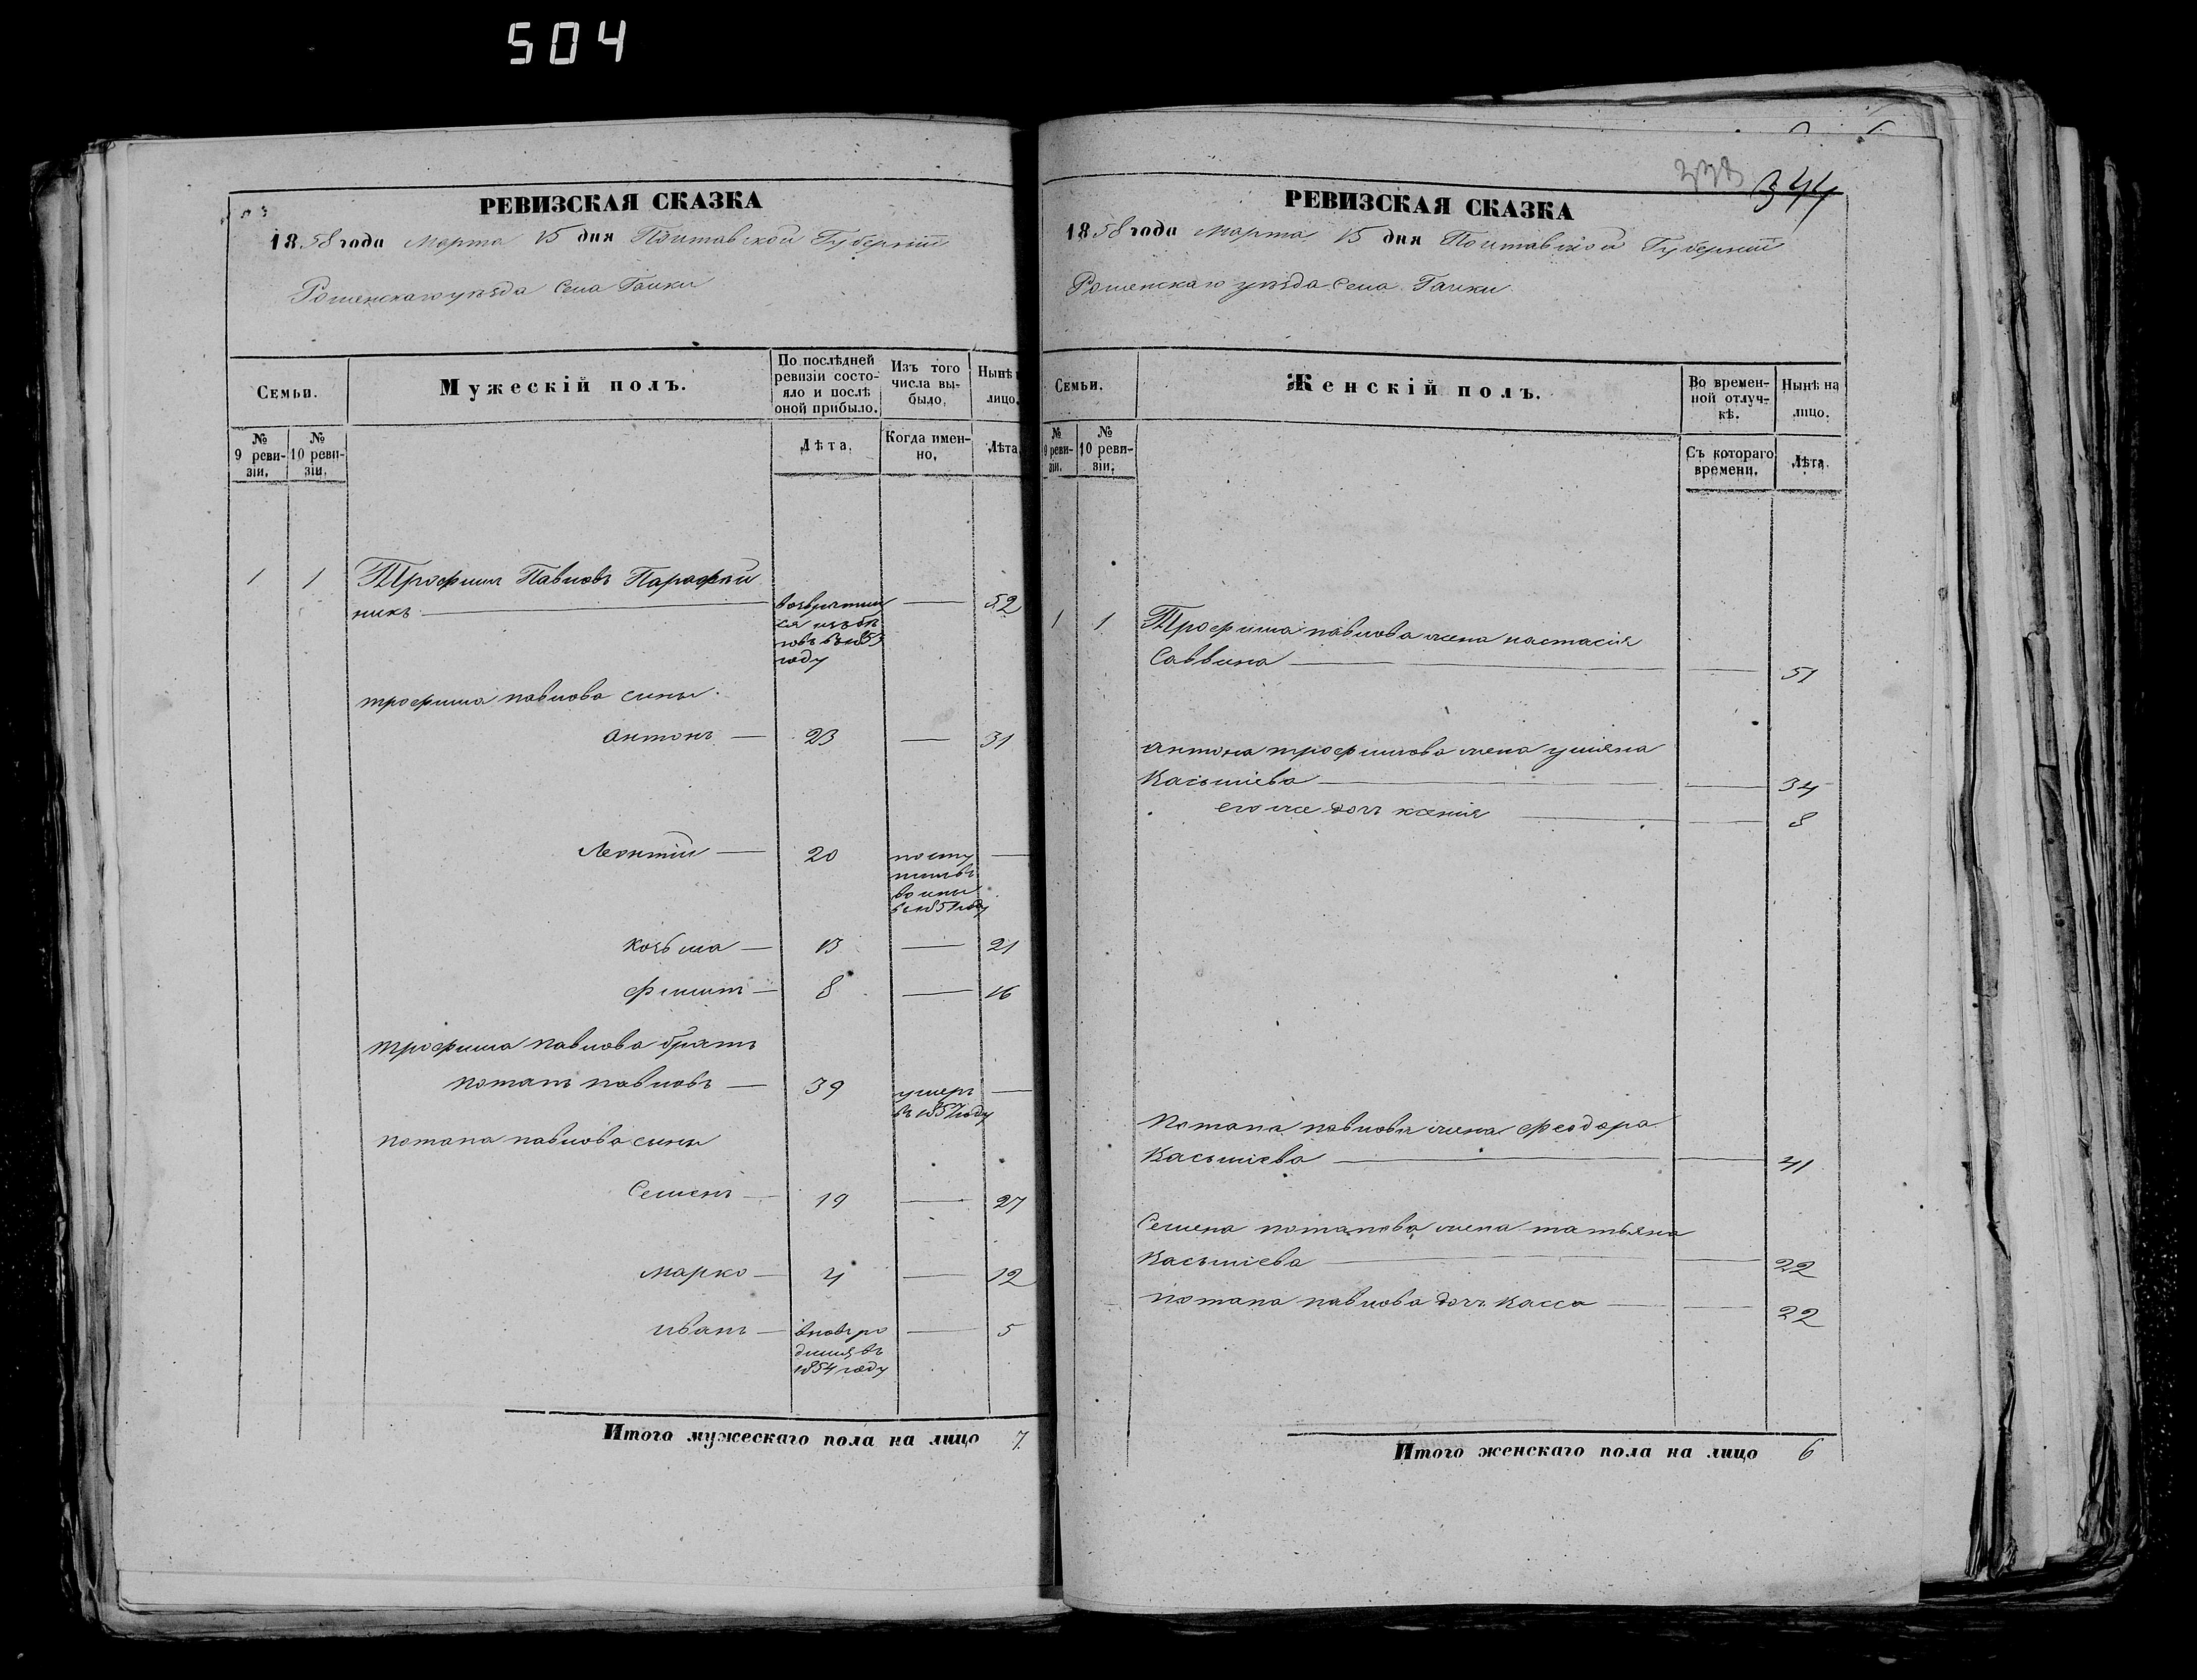 504
РЕВИЗСКАЯ СКАЗКА
1858 года Марта 15 дня Полтавской Губерніи
Роменскаго уѣзда Села Галки
Семьи.
Мужескій полъ.
По послѣдней ревизіи состояло и послѣ оной прибыло.
Изъ того числа выбыло.
Нынѣ
лицо.
№ 9 ревизіи.
№ 10 ревизіи.
Лѣта.
Когда именно.
Лѣта.
1 1 Трофимъ Павловъ Парафѣй
никъ — возвратил — 52
ся изъ бѣ
говъ въ 1853
году
трофима павлова сыны
антонъ — 23 — 31
Леонтій — 20 посту —
въ 1851 году
козьма — 13 — 21
филипъ — 8 — 16
трофима павлова братъ
потапъ павловъ — 39 умеръ —
въ 1857 году
потапа павлова сыны
Семенъ — 19 — 27
марко — 4 — 12
иванъ — вновь ро — 5
дился въ
1854 году
Итого мужескаго пола на лицо 7
344
РЕВИЗСКАЯ СКАЗКА
1858 года Марта 15 дня Полтавской Губерніи
Роменскаго уѣзда Села Галки
Семьи.
Женскій полъ.
Во временной отлучкѣ.
Нынѣ на лицо.
№ 9 ревизіи.
№ 10 ревизіи.
Съ котораго времени.
Лѣта.
1 1 Трофима павлова жена настасія
Саввина — — 51
антона трофимова жена уляна
Касьянiева — — 34
его же дочь ксенія — — 8
Потапа павлова жена феодора
Касьянiева — — 41
Семена потапова жена татьяна
Касьянiева — — 22
потапа павлова дочь васса — — 22
Итого женскаго пола на лицо 6